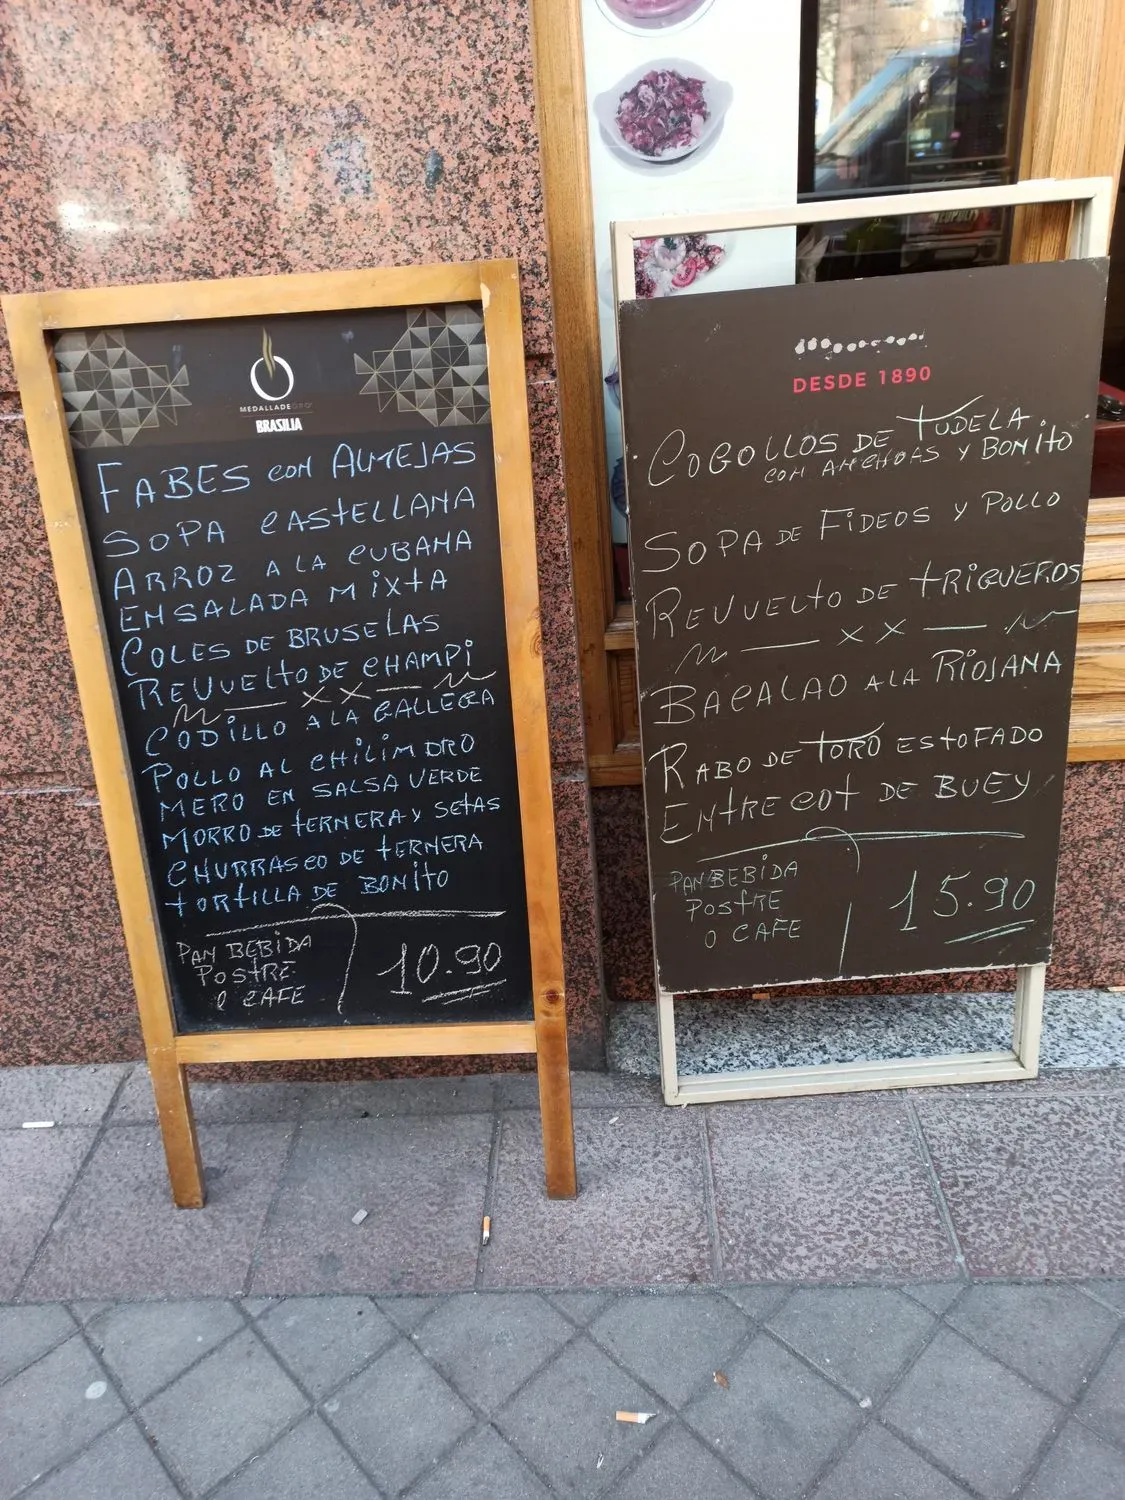 MEDALLADEORO
BRASILIA
FABES CON ALMEJAS
SOPA CASTELLANA
ARROZ A LA CUBANA
ENSALADA MIXTA
COLES DE BRUSELAS
REVUELTO DE CHAMPI
XX
CODILLO A LA GALLEGA
POLLO AL CHILINDRO
MERO EN SALSA VERDE
MORRO DE TERNERA Y SETAS
CHURRASCO DE TERNERA
TORTILLA DE BONITO
PAN BEBIDA
POSTRE
O CAFE
10.90
DESDE 1890
COGOLLOS DE TUDELA
CON ANCHOAS Y BONITO
SOPA DE FIDEOS Y POLLO
REVUELTO DE TRIGUEROS
XX
BACALAO A LA RIOJANA
RABO DE TORO ESTOFADO
ENTRECOT DE BUEY
PAN BEBIDA
POSTRE
O CAFE
15.90